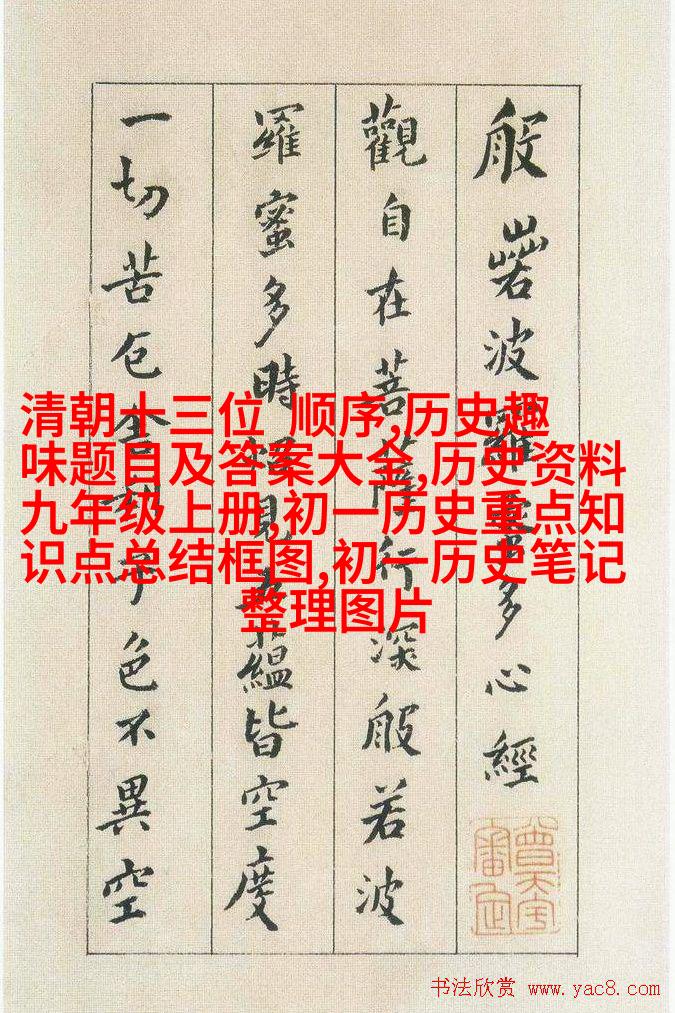 般若波羅蜜多心經
觀自在菩薩行深般若波
羅蜜多時照見五蘊皆空度
一切苦厄舍利子色不異空
清朝十三位 顺序,历史趣
味题目及答案大全,历史资料
九年级上册,初一历史重点知
识点总结框图,初一历史笔记
整理图片
书法欣赏 www.yac8.com